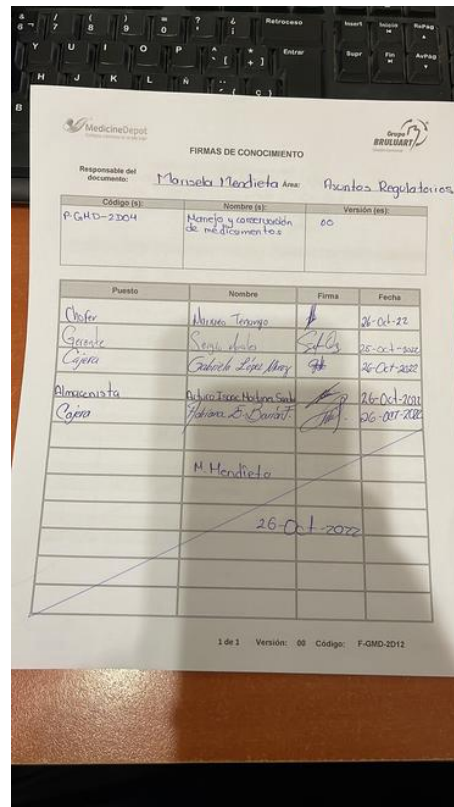 Retroceso
Insert
Inicio
RePág
Entrar
Supr
Fin
AvPág
Y U I O P
H J K L Ñ
B
MedicineDepot
Grupo
BRULUART
FIRMAS DE CONOCIMIENTO
Responsable del documento: Marisela Mendieta Área: Asuntos Regulatorios
Código (s): Nombre (s): Versión (es):
P-GMD-2D04 Manejo y conservación de medicamentos 00
Puesto Nombre Firma Fecha
Chofer 26-Oct-22
Gerente Sergio 25-oct-2022
Cajera Gabriela López 26-Oct-2022
Almacenista Arturo Isaac 26-Oct-2022
Cajera Adriana 26-oct-2022
M. Mendieta
26-Oct-2022
1 de 1 Versión: 00 Código: F-GMD-2D12